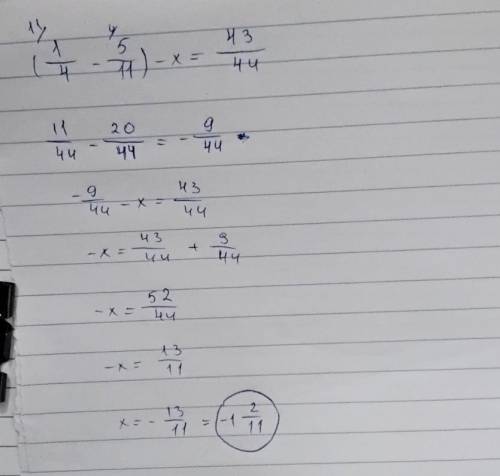 11/ 4/
(1/4 - 5/11) - x = 43/44
11/44 - 20/44 = - 9/44
- 9/44 - x = 43/44
- x = 43/44 + 9/44
- x = 52/44
- x = 13/11
x = - 13/11 = -1 2/11